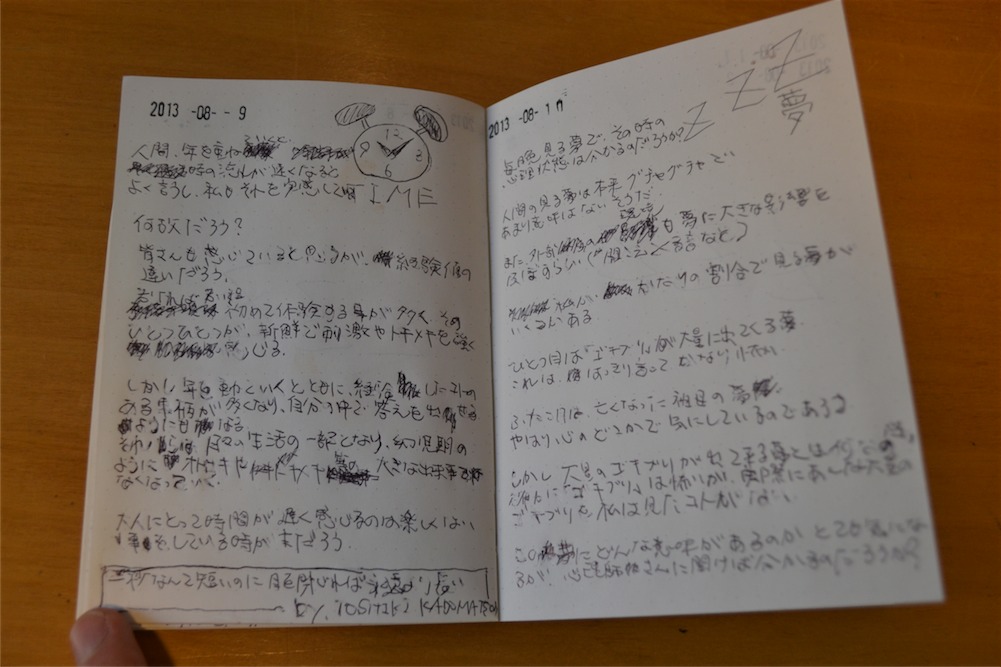 2013 -08- - 9
12
3
6
9
TIME
人間、年を重ねていくと、
時の流れが速くなると
よく言うし、私もそれを実感して
何故だろう?
皆さんも感じていると思うが、経験値の
違いだろう。
若ければ若い程
初めて体験する事が多く、その
ひとつひとつが、新鮮で刺激やトキメキを強く
感じる。
しかし、年を重ねていくとともに、経験したことの
ある事柄が多くなり、自分の中で答えを出せる
ようにもなる
それらは日々生活の一部となり、幼児期の
ように トキメキ 大きな出来事で
なくなっていく。
大人にとって時間が遅く感じるのは楽しくない
事をしている時がまだろう
一秒なんて短いのに目閉じれば永遠より長い
by. TOSHIAKI KADOMATSU
2013 -08- 1
Z Z Z
夢
毎晩見る夢で、その時の
心理状態は分かるのだろうか?
人間の見る夢は本来グチャグチャで
あまり意味はないそうだ。
また、外部 現時 も夢に大きな影響を
及ぼすらしい(聞こえてくる音など)
私が、かなりの割合で見る夢が
いくつかある。
ひとつ目は「ゴキブリ」が大量に出てくる夢。
これは、はっきり言ってかなり怖い。
ふたつ目は、亡くなった祖母の夢。
やはり心のどこかで気にしているのである
しかし大量のゴキブリが出て来る夢とは何なのか
確かに「ゴキブリ」は怖いが、実際にあんな大量の
ゴキブリを私は見たコトがない。
この夢にどんな意味があるのかとても気にな
るが、心理師さんに聞けば分かるのだろうか?